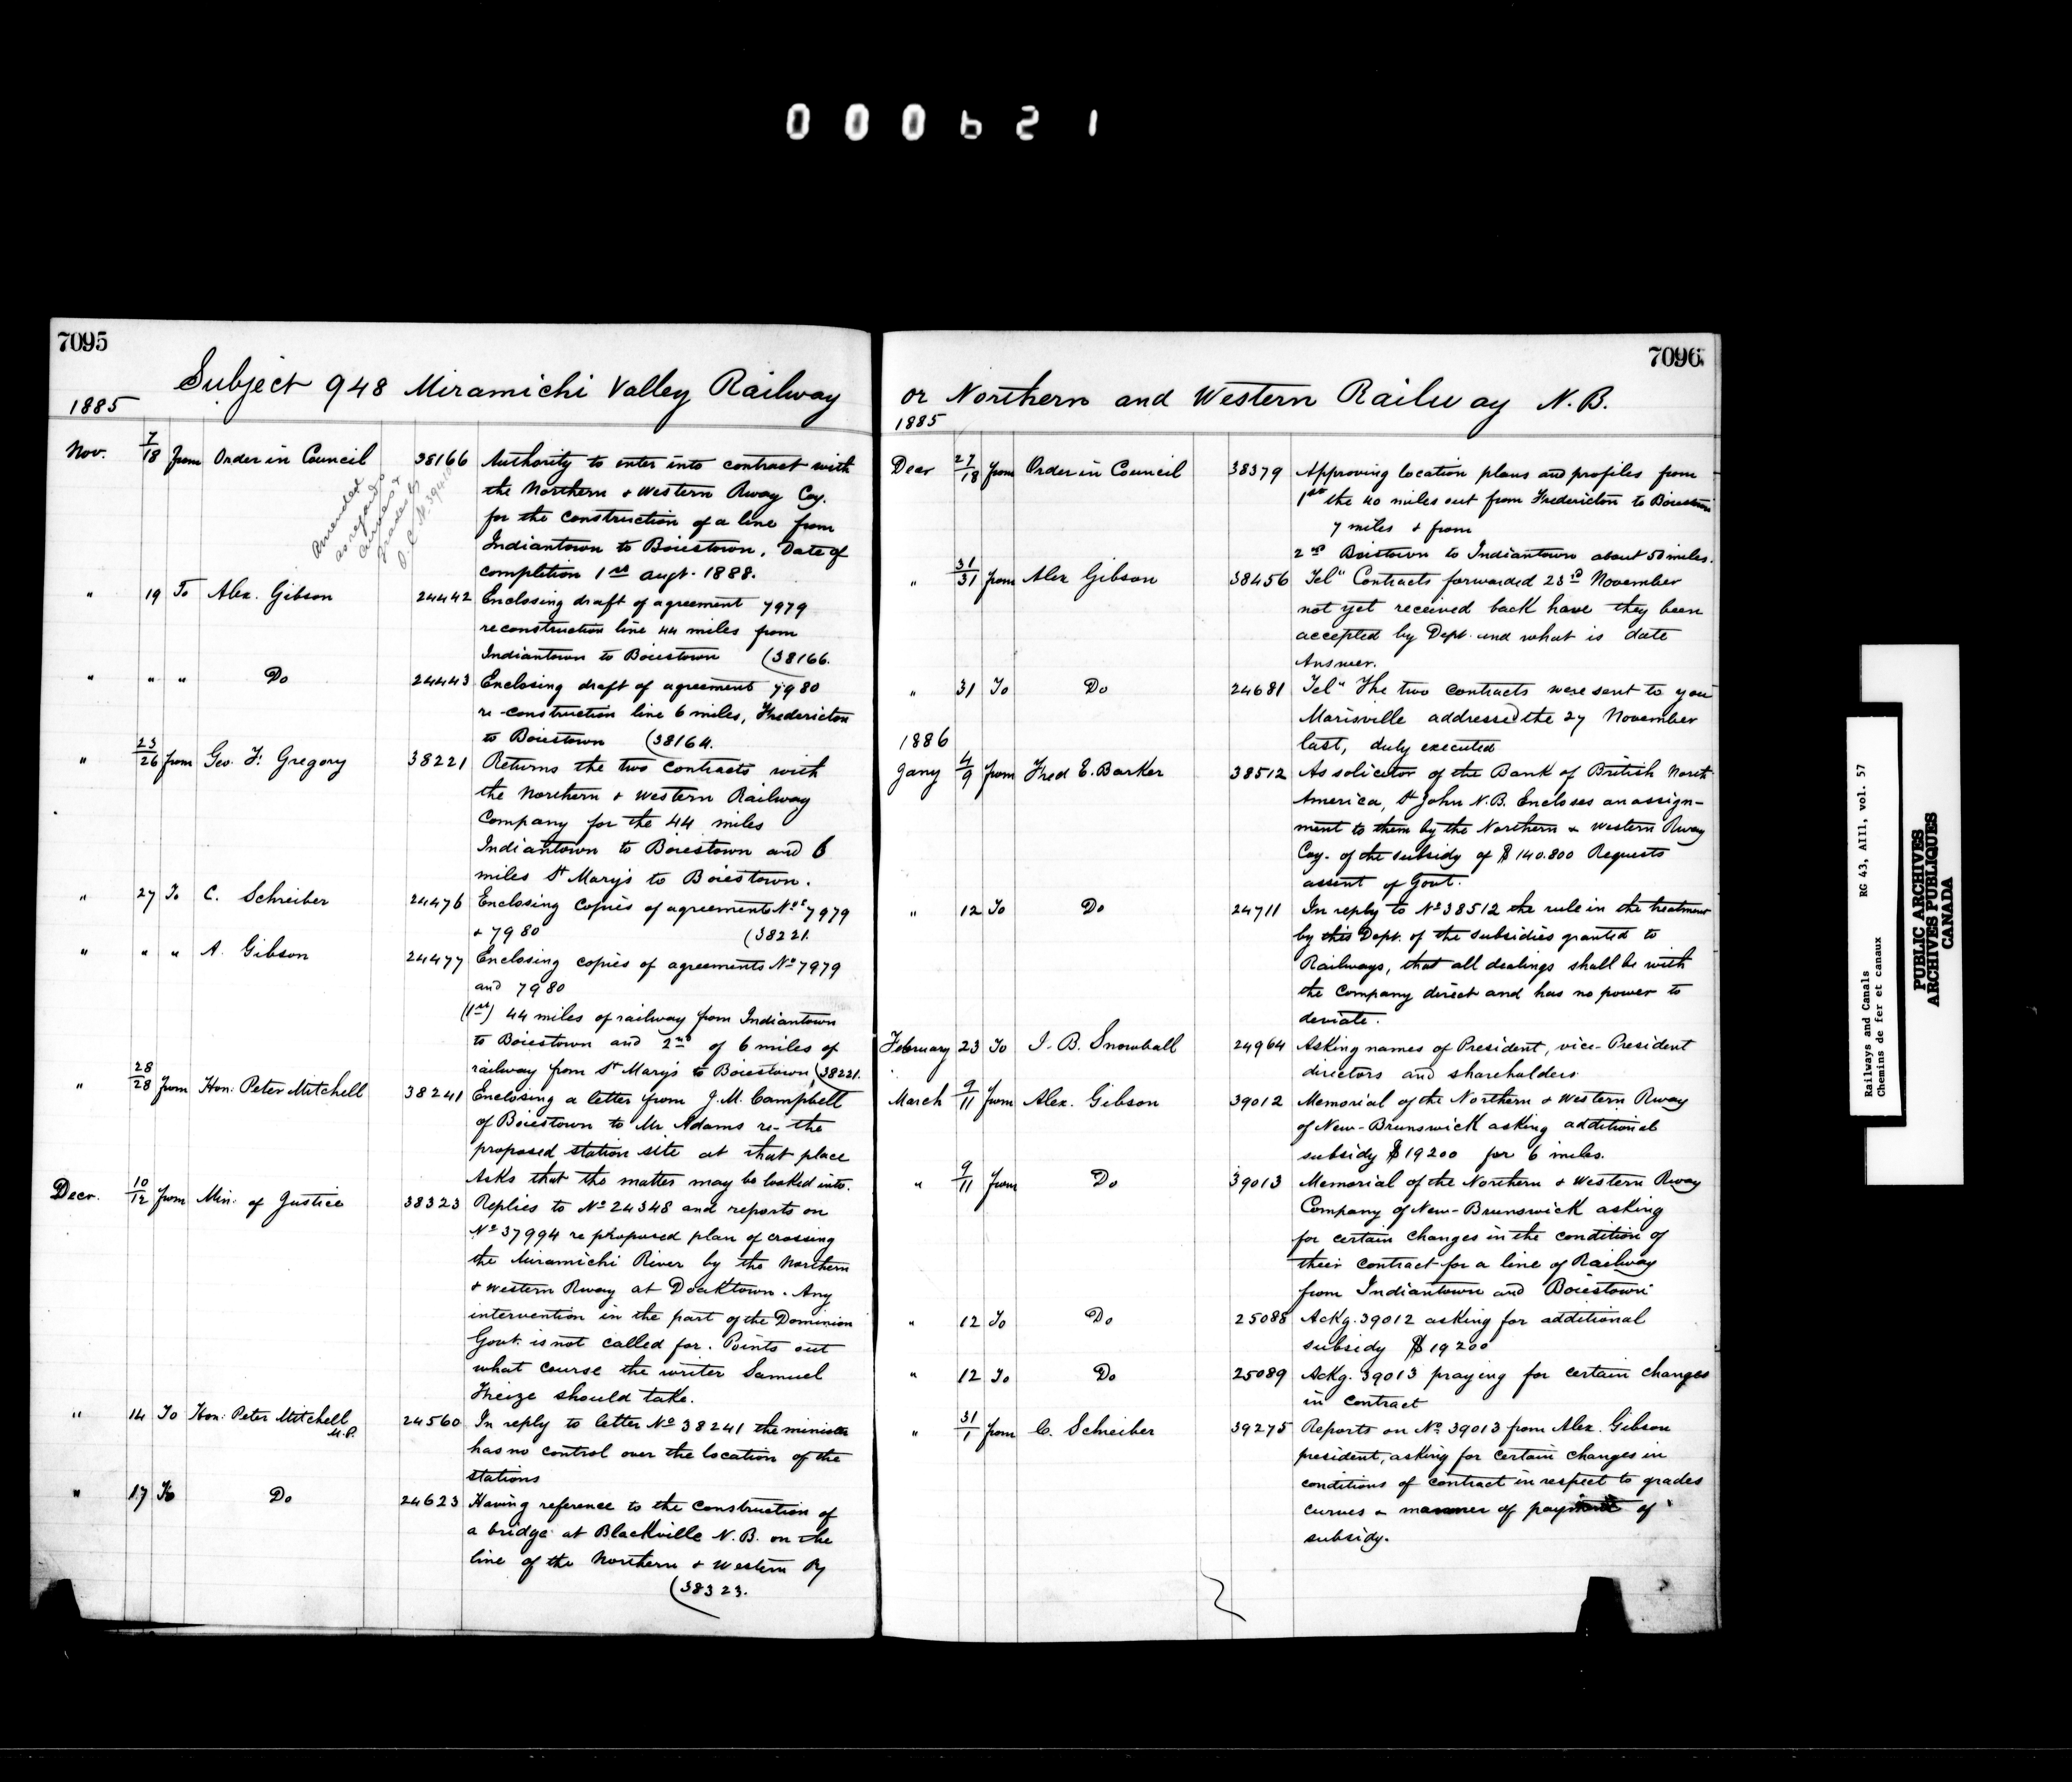 000621
7095
Subject 948 Miramichi Valley Railway
1885
Nov. 7/18 from Order in Council 38166 Authority to enter into contract with
the Northern & Western Rway Coy.
for the construction of a line from
Indiantown to Boiestown. Date of
completion 1st augt. 1888.
Amended
as regards
curves &
grades by
O.C. N.
" 19 To Alex. Gibson 24442 Enclosing draft of agreement 7979
reconstruction line 44 miles from
Indiantown to Boiestown (38166.
" " " Do 24443 Enclosing draft of agreement 7980
re-construction line 6 miles, Fredericton
to Boiestown (38164.
" 23/26 from Geo. F. Gregory 38221 Returns the two contracts with
the Northern & Western Railway
Company for the 44 miles
Indiantown to Boiestown and 6
miles St Mary's to Boiestown.
" 27 To C. Schreiber 24476 Enclosing copies of agreements Nos 7979
& 7980 (38221.
" " " A. Gibson 24477 Enclosing copies of agreements No 7979
and 7980
(1st) 44 miles of railway from Indiantown
to Boiestown and 2nd of 6 miles of
railway from St Mary's to Boiestown, (38221.
" 28/28 from Hon: Peter Mitchell 38241 Enclosing a letter from J. M. Campbell
of Boiestown to Mr Adams re- the
proposed station site at that place
Asks that the matter may be looked into.
Decr. 10/12 from Min: of Justice 38323 Replies to No 24348 and reports on
No 37994 re proposed plan of crossing
the Miramichi River by the Northern
& Western Rway at Doaktown. Any
intervention in the part of the Dominion
Govt. is not called for. Points out
what course the writer Samuel
Freize should take.
" 14 To Hon: Peter Mitchell M.P. 24560 In reply to letter No 38241 the minister
has no control over the location of the
stations
" 17 To Do 24623 Having reference to the construction of
a bridge at Blackville N.B. on the
line of the Northern & Western Ry
(38323.
7096
or Northern and Western Railway N.B.
1885
Decr 27/18 from Order in Council 38379 Approving location plans and profiles from
1st the 40 miles out from Fredericton to Boiestown
7 miles & from
2nd Boistown to Indiantown about 50 miles.
" 31/31 from Alex Gibson 38456 Tel" Contracts forwarded 23rd November
not yet received back have they been
accepted by Dept. and what is date
Answer.
" 31 To Do 24681 Tel" The two contracts were sent to you
Marisville addressed the 27 November
last, duly executed
1886
Jany 4/9 from Fred E. Barker 38512 As solicitor of the Bank of British North
America, St John N.B. Encloses an assign-
ment to them by the Northern & Western Rway
Coy. of the subsidy of $140.800 Requests
assent of Govt.
" 12 To Do 24711 In reply to No 38512 the rule in the treatment
by this Dept. of the subsidies granted to
Railways, that all dealings shall be with
the Company direct and has no power to
deviate.
February 23 To J. B. Snowball 24964 Asking names of President, vice-President
directors and shareholders
March 9/11 from Alex. Gibson 39012 Memorial of the Northern & Western Rway
of New-Brunswick asking additional
subsidy $19200 for 6 miles.
" 9/11 from Do 39013 Memorial of the Northern & Western Rway
Company of New-Brunswick asking
for certain changes in the condition of
their contract for a line of Railway
from Indiantown and Boiestown
" 12 To Do 25088 Ackg. 39012 asking for additional
subsidy $19200
" 12 To Do 25089 Ackg. 39013 praying for certain changes
in contract
" 31/1 from C. Schreiber 39275 Reports on No. 39013 from Alex. Gibson
president, asking for certain changes in
conditions of contract in respect to grades
curves & manner of payment of
subsidy.
Railways and Canals RG 43, AIII, vol. 57
Chemins de fer et canaux
PUBLIC ARCHIVES
ARCHIVES PUBLIQUES
CANADA